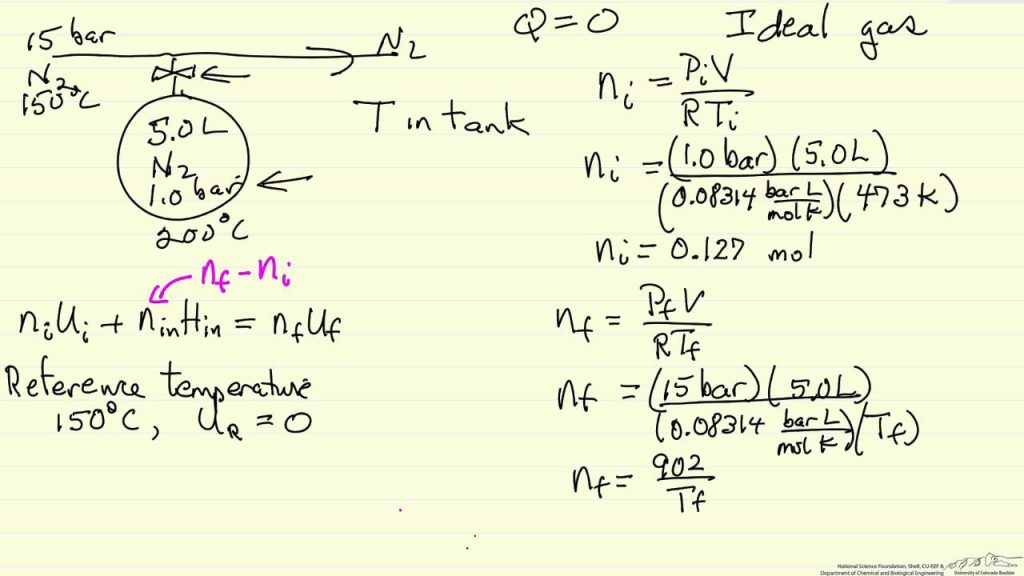 15 bar
N₂
150°C
N₂
5.0L
N₂
1.0 bar
200°C
T in tank
n_f - n_i
n_i U_i + n_in H_in = n_f U_f
Reference temperature
150°C, U_R = 0
Q = 0 Ideal gas
n_i = P_i V / R T_i
n_i = (1.0 bar) (5.0L) / (0.08314 bar L / mol K) (473 K)
n_i = 0.127 mol
n_f = P_f V / R T_f
n_f = (15 bar) (5.0L) / (0.08314 bar L / mol K) (T_f)
n_f = 902 / T_f
National Science Foundation, Shell, CU-EEF &
Department of Chemical and Biological Engineering
University of Colorado Boulder